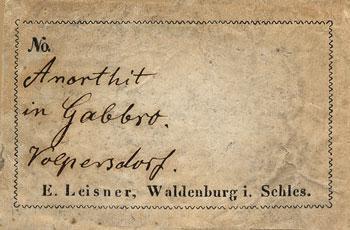 No.
Anorthit
in Gabbro.
Volpersdorf.
E. Leisner, Waldenburg i. Schles.